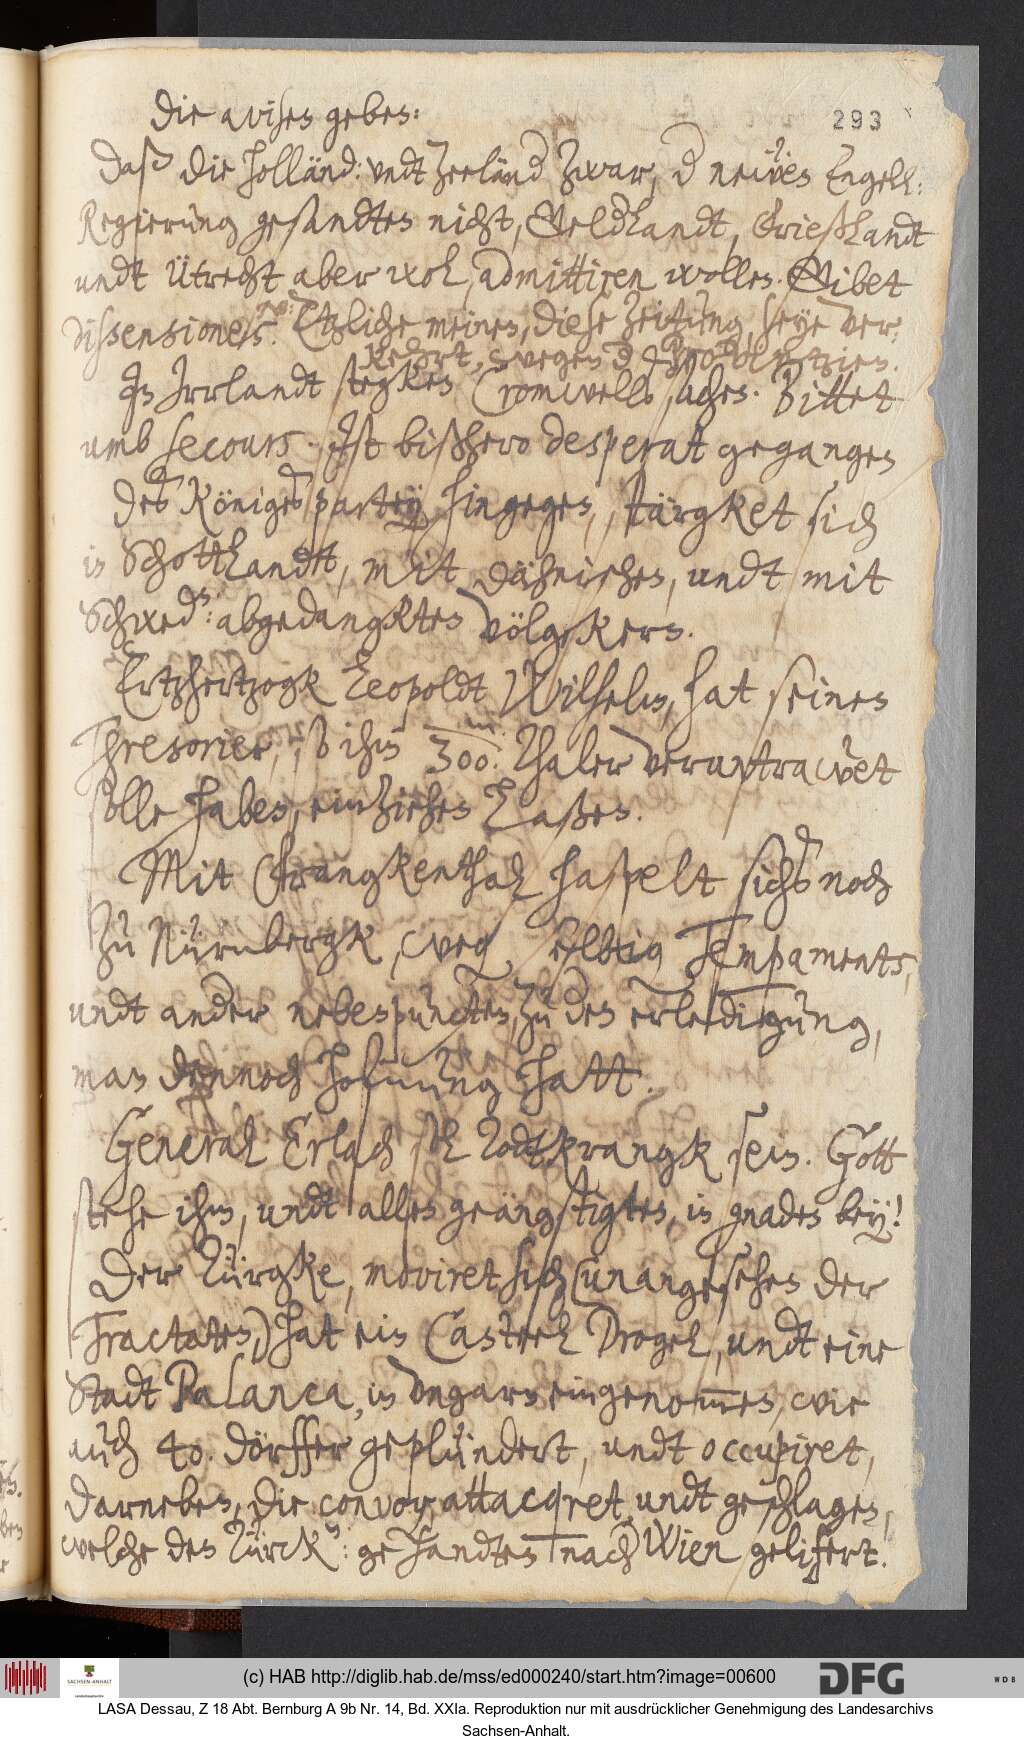 293
Die avisen geben:
Daß die Holländ: undt Zeeländ zwar, d neẅen Engell:
Regierung gesandten nicht, Geldlandt, Frießlandt
undt Ütrecht aber wol, admittiren wollen. Gibet
dissensionen. Etzliche meinen, diese zeitung seye ver¬
kehrt, wegen d
In Irrlandt stegken Cromwells sachen. Bittet
umb secours. Ist bißhero desperat gegangen
Des Königes partey hingegen, stärgket sich
in Schottlandt, mit dähnischen, undt mit
Schwed: abgedangkten völgkern.
Ertzhertzogk Leopoldt Wilhelm, hat seinen
Thresorier, so ihm 300 m. Thaler veruntrawet
solle haben, einziehen laßen.
Mit Frangkenthal haspelt sichs noch
zu Nürnbergk, weg selbig Tempaments,
undt ander nebenpuncten, zu den erledigung,
man dennoch hofnung hatt.
General Erlach sol Todtkrangk sein. Gott
stehe ihm, undt allen geängstigten, in gnaden bey!
Der Türgke, moviret sich (unangesehen der
Tractaten) hat ein Casteel Drogel, undt eine
Stadt Palanca, in Ungarn eingenom̅en, wie
auch 40. dörffer geplündert, undt occupiret,
darneben, die convoy attacqret, undt geschlagen,
welche den Türck: gesandten nach Wien gelifert.
(c) HAB http://diglib.hab.de/mss/ed000240/start.htm?image=00600
SACHSEN-ANHALT
DFG
WDB
LASA Dessau, Z 18 Abt. Bernburg A 9b Nr. 14, Bd. XXIa. Reproduktion nur mit ausdrücklicher Genehmigung des Landesarchivs
Sachsen-Anhalt.